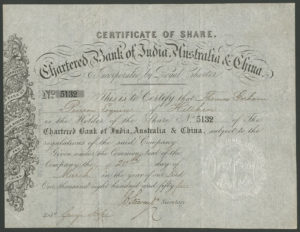 CERTIFICATE OF SHARE.
Chartered Bank of India, Australia & China.
Incorporated by Royal Charter.
No. 5132 This is to Certify that Thomas
Esquire of
is the Holder of the Share No. 5132 of The
Chartered Bank of India, Australia & China, subject to the
regulations of the said Company.
Given under the Common Seal of the
Company the day of
March in the year of our Lord
One thousand eight hundred and fifty